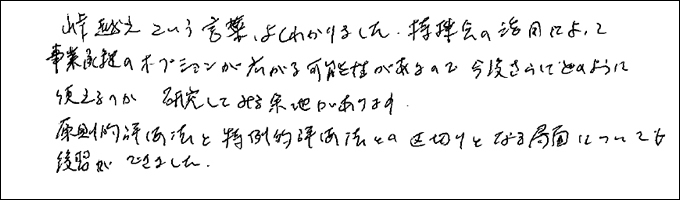 峠越えという言葉、よくわかりました。持株会の活用によって
事業承継のオプションが広がる可能性があるので今後さらにどのように
使えるのか 研究してみる余地があります。
原則的評価法と特例的評価法との区切りとなる局面についても
復習ができました。